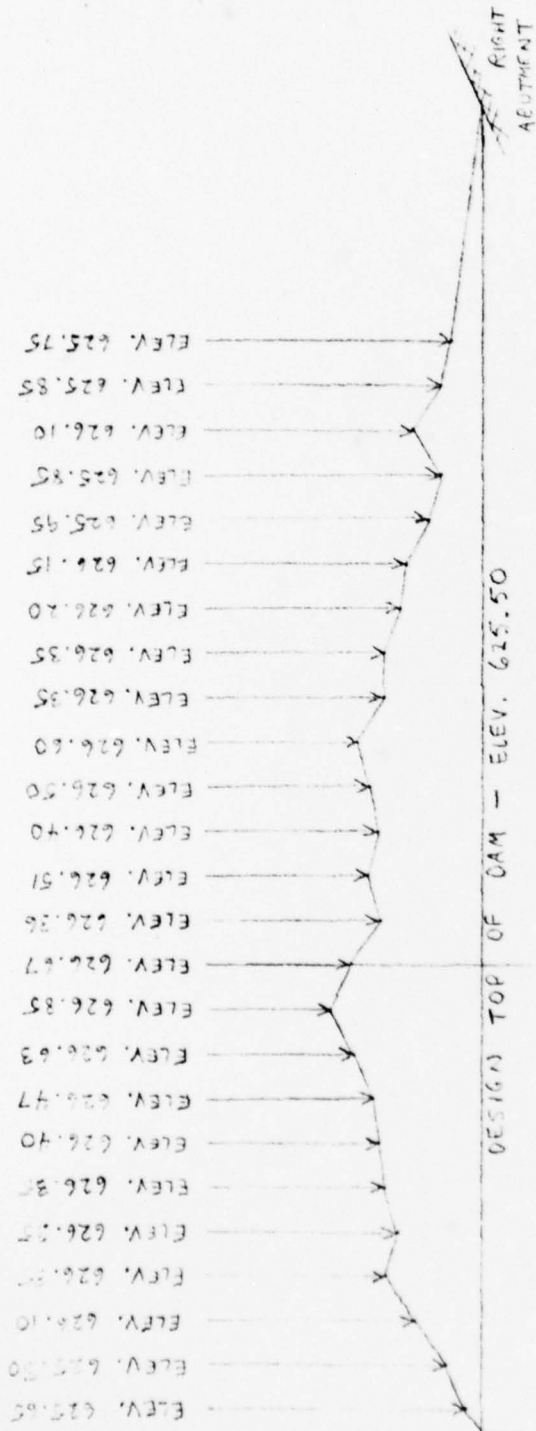 RIGHT
ABUTMENT
ELEV. 625.75
ELEV. 625.85
ELEV. 626.10
ELEV. 625.85
ELEV. 625.95
ELEV. 626.15
ELEV. 626.20
ELEV. 626.35
ELEV. 626.35
ELEV. 626.60
ELEV. 626.50
ELEV. 626.40
ELEV. 626.51
ELEV. 626.36
ELEV. 626.67
ELEV. 626.85
ELEV. 626.63
ELEV. 626.47
ELEV. 626.40
ELEV. 626.35
ELEV. 626.25
ELEV.
ELEV. 626.10
ELEV. 625.80
ELEV. 625.65
DESIGN TOP OF DAM — ELEV. 625.50